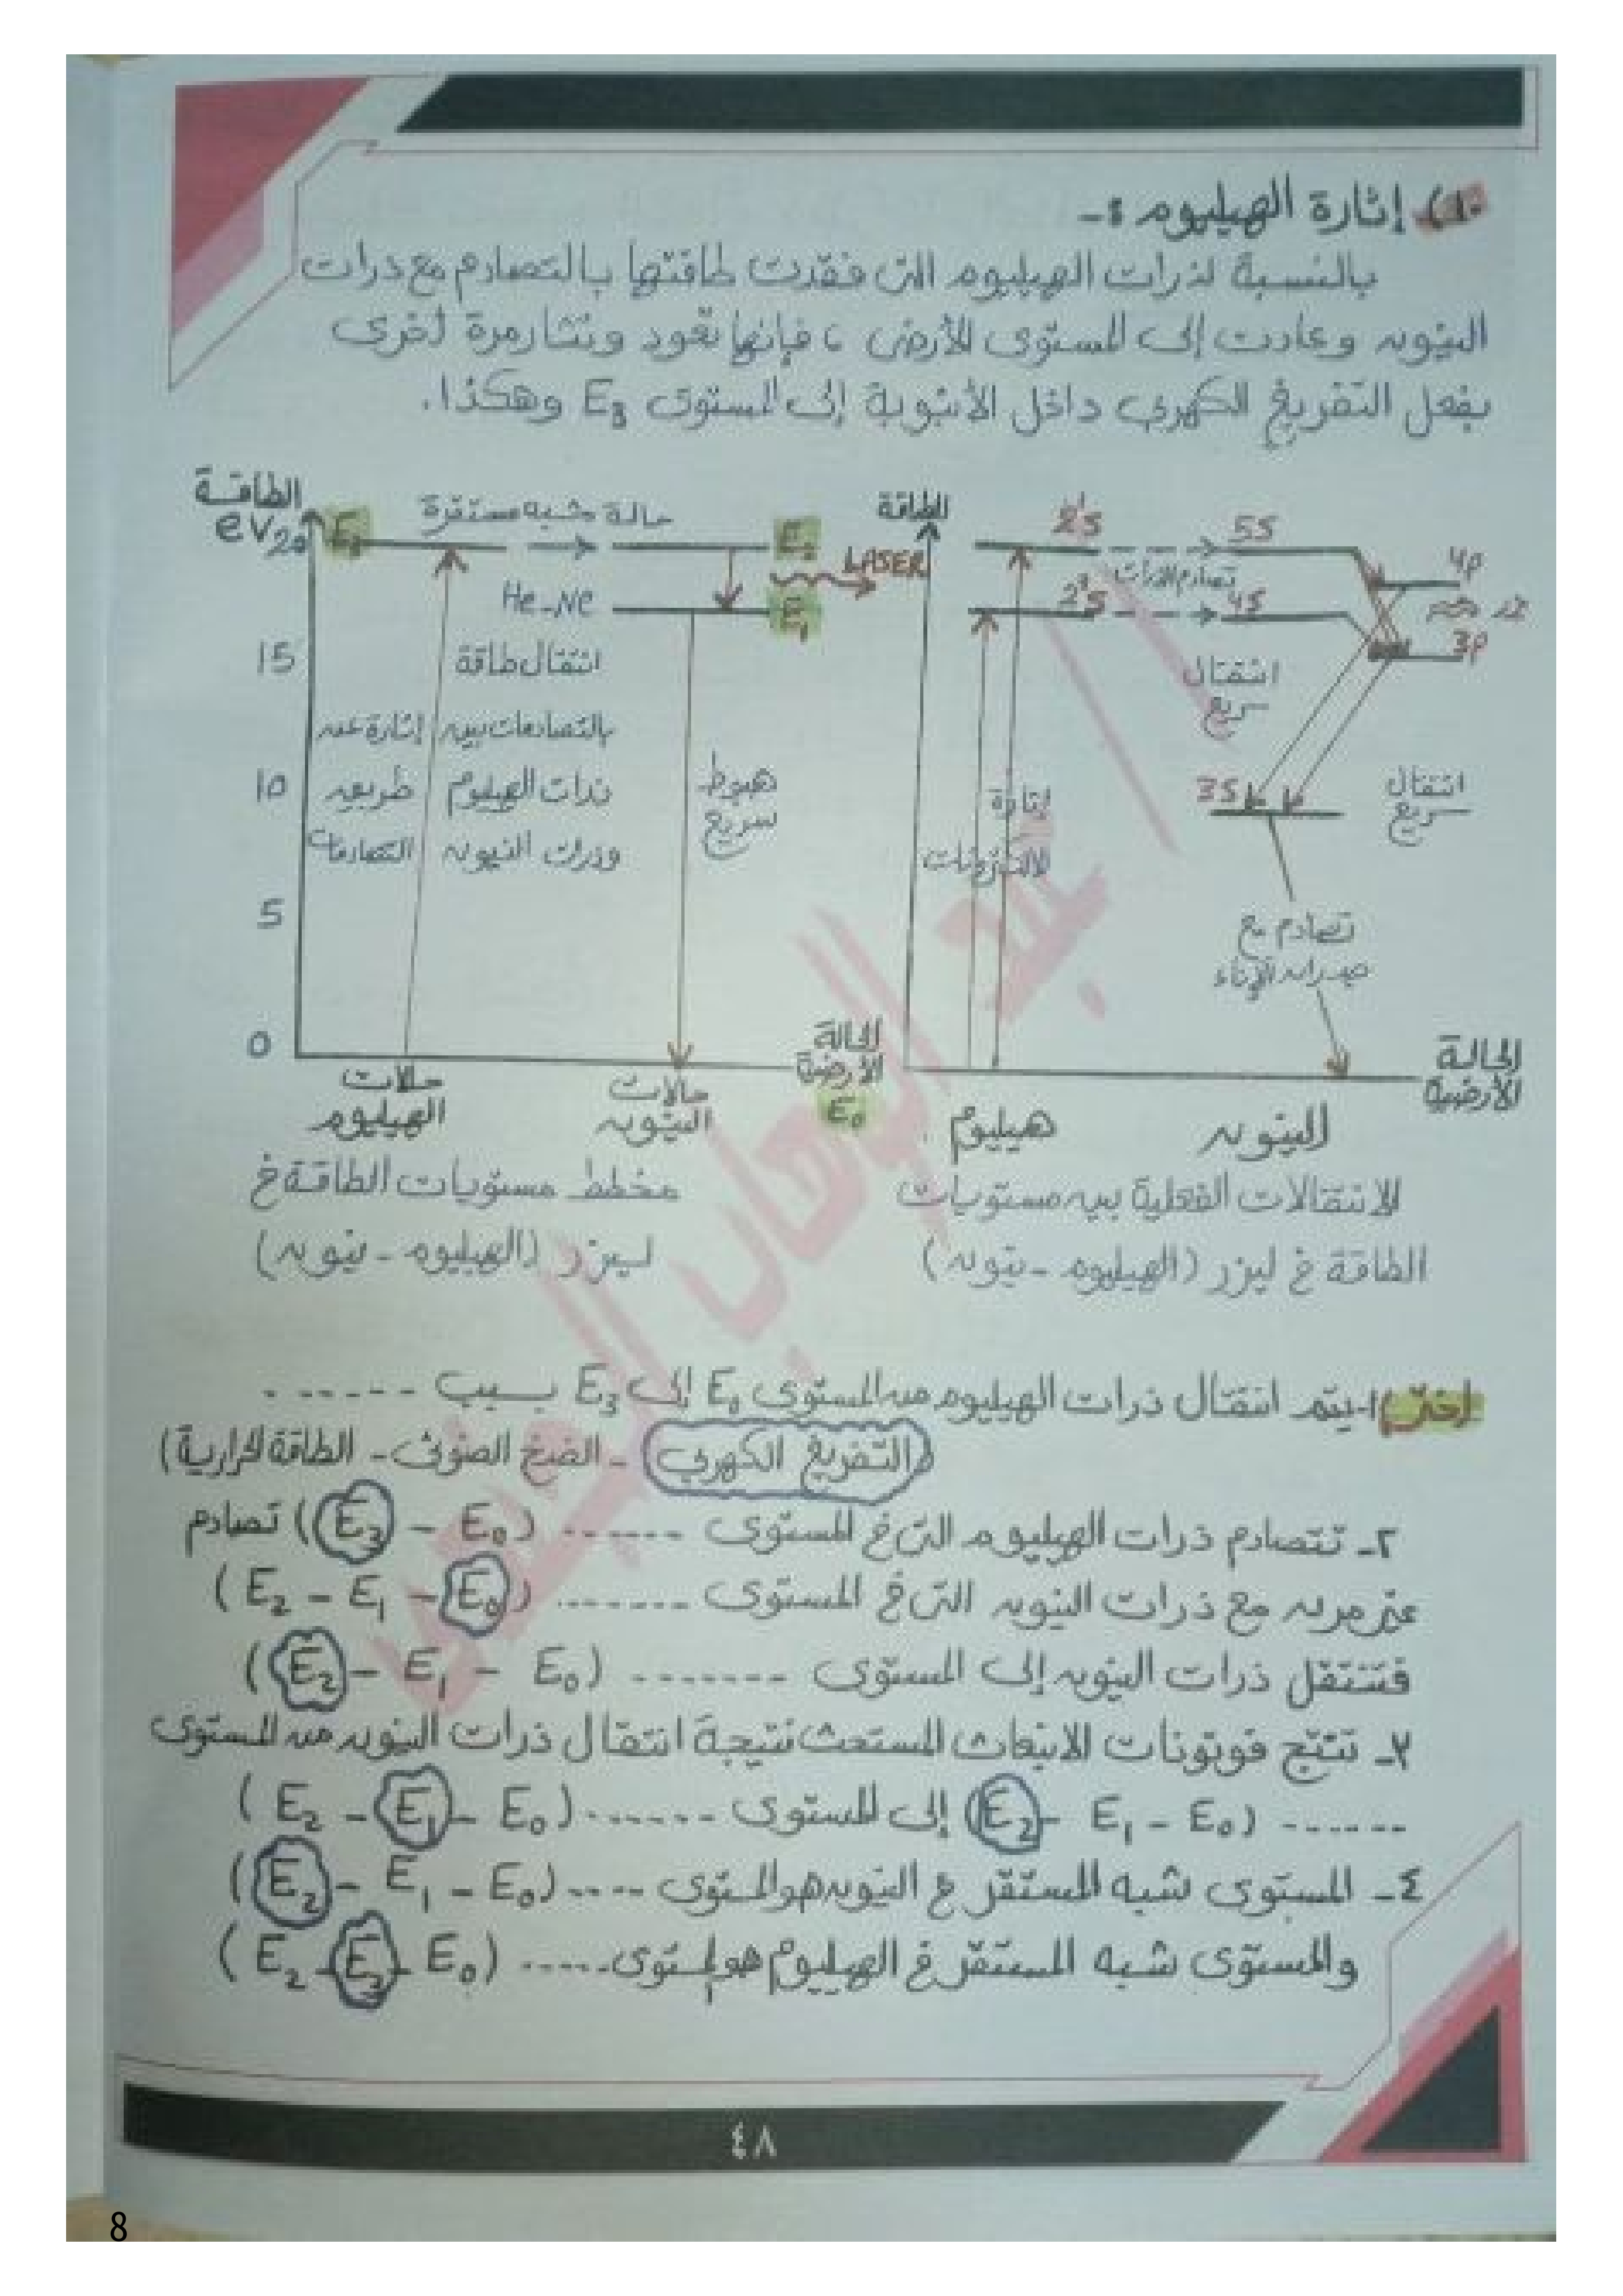 ١٠) إثارة الهيليوم :-
بالنسبة لذرات الهيليوم التى فقدت طاقتها بالتصادم مع ذرات
النيون وعادت إلى المستوى الأرضى ، فإنها تعود وتثار مرة أخرى
بفعل التفريغ الكهربى داخل الأنبوبة إلى المستوى E3 وهكذا.
الطاقة
eV
20
15
10
5
0
E3
حالة شبه مستقرة
E2
LASER
He-Ne
E1
إثارة عن
طريق
التصادمات
انتقال طاقة
بالتصادمات بين
ذرات الهيليوم
وذرات النيون
هبوط
سريع
حالات
الهيليوم
حالات
النيون
الحالة
الأرضية
E0
مخطط مستويات الطاقة فى
ليزر (الهيليوم - نيون)
الطاقة
2¹S
5S
4P
تصادم الذرات
2³S
4S
3P
انتقال
سريع
3S
انتقال
سريع
إثارة
الالكترونات
تصادم مع
جدران الإناء
الحالة
الأرضية
هيليوم
النيون
الانتقالات الفعلية بين مستويات
الطاقة فى ليزر (الهيليوم - نيون)
اختر ١- يتم انتقال ذرات الهيليوم من المستوى E0 إلى E3 بسبب ......
(التفريغ الكهربي - الضخ الضوئى - الطاقة الحرارية)
٢- تتصادم ذرات الهيليوم التى فى المستوى ....... (E0 - E3) تصادم
غير مرن مع ذرات النيون التى فى المستوى ....... (E0 - E1 - E2)
فتنتقل ذرات النيون إلى المستوى ....... (E0 - E1 - E2)
٣- تنتج فوتونات الانبعاث المستحث نتيجة انتقال ذرات النيون من المستوى
...... (E0 - E1 - E2) إلى المستوى ...... (E0 - E1 - E2)
٤- المستوى شبه المستقر فى النيون هو المستوى .... (E0 - E1 - E2)
والمستوى شبه المستقر فى الهيليوم هو المستوى ..... (E0 - E3 - E2)
٤٨
8